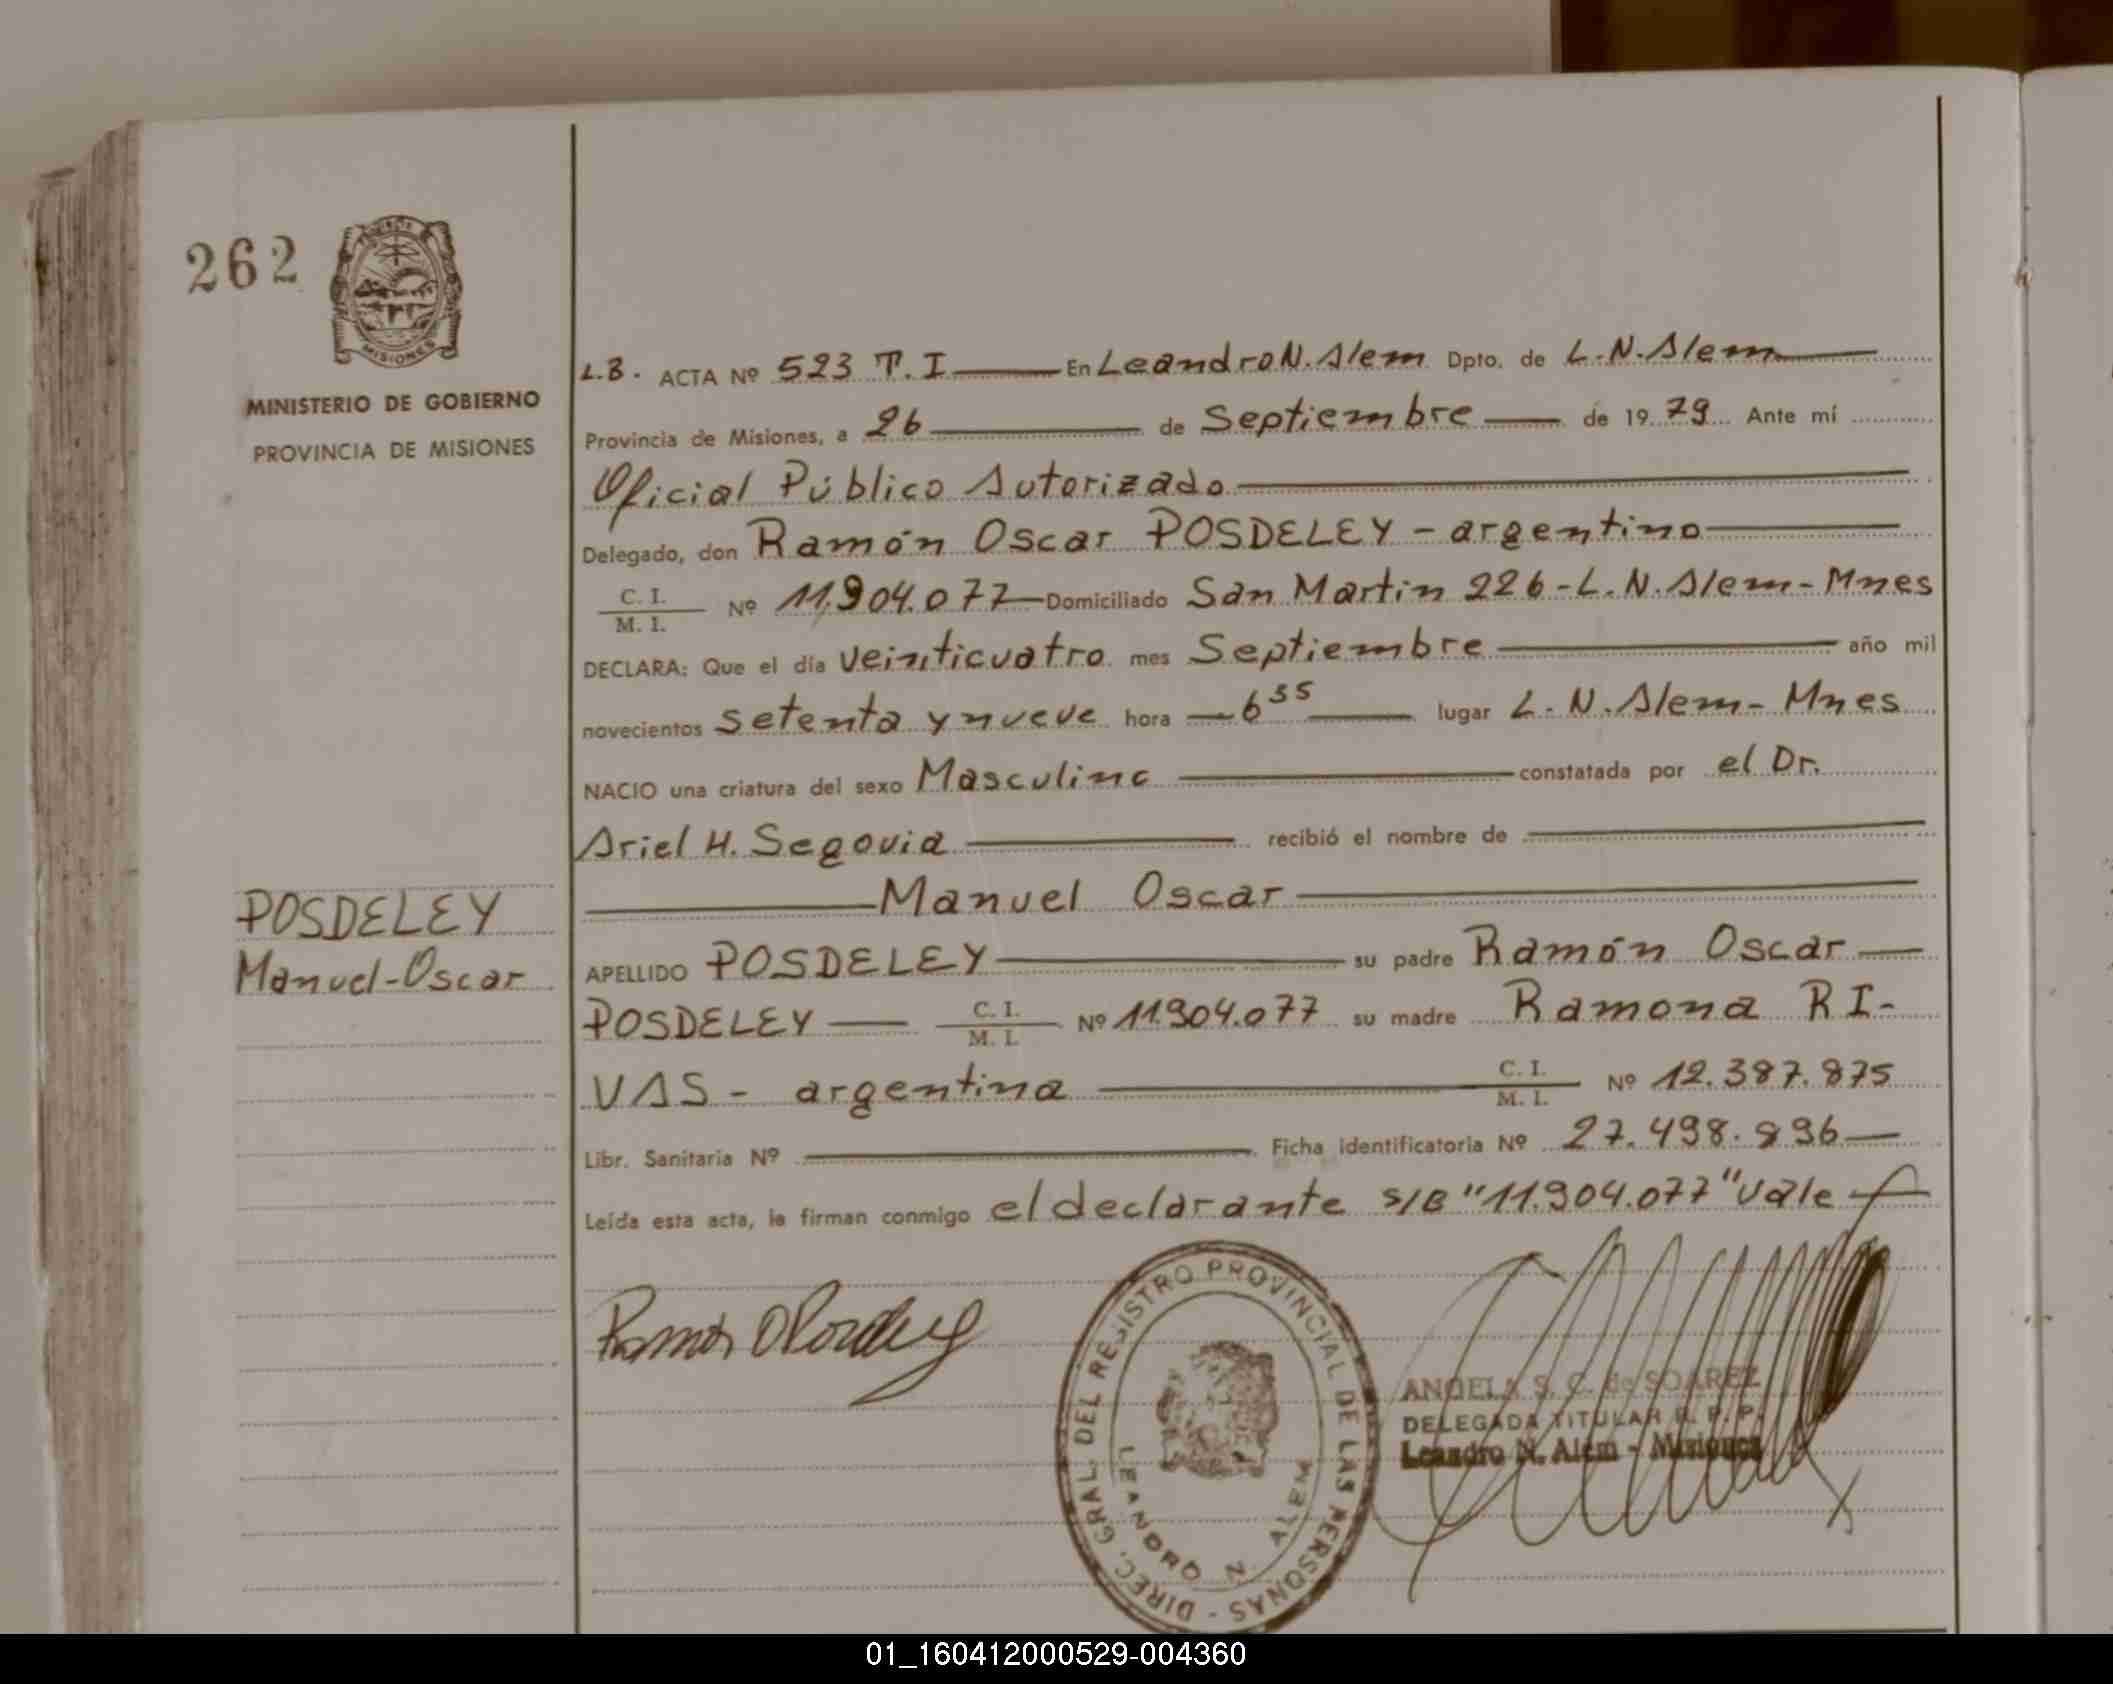 262
MISIONES
MINISTERIO DE GOBIERNO
PROVINCIA DE MISIONES
L.B. ACTA Nº 523 T.I En Leandro N. Alem Dpto. de L.N. Alem
Provincia de Misiones, a 26 de Septiembre de 1979 Ante mí
Oficial Público Autorizado
Delegado, don Ramón Oscar POSDELEY - argentino
C. I.
M. I. Nº 11.904.077 Domiciliado San Martin 226 - L. N. Alem - Mnes
DECLARA: Que el día veinticuatro mes Septiembre año mil
novecientos setenta y nueve hora 6 35 lugar L. N. Alem - Mnes
NACIO una criatura del sexo Masculino constatada por el Dr.
Ariel H. Segovia recibió el nombre de
Manuel Oscar
POSDELEY
Manuel-Oscar
APELLIDO POSDELEY su padre Ramón Oscar
POSDELEY C. I. M. I. Nº 11.904.077 su madre Ramona RI-
VAS - argentina C. I. M. I. Nº 12.387.875
Libr. Sanitaria Nº Ficha identificatoria Nº 27.498.896
Leída esta acta, la firman conmigo el declarante S/B "11.904.077" Vale
DIREC. GRAL. DEL REGISTRO PROVINCIAL DE LAS PERSONAS -
LEANDRO N. ALEM
ANGELA S. C. de SOAREZ
DELEGADA TITULAR R. P. P.
Leandro N. Alem - Misiones
01_160412000529-004360